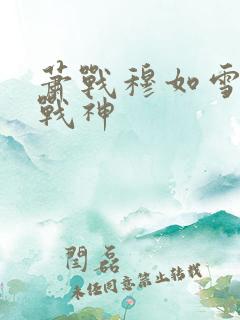 蕭戰穆如雪
戰神
閆磊
未经同意禁止转载